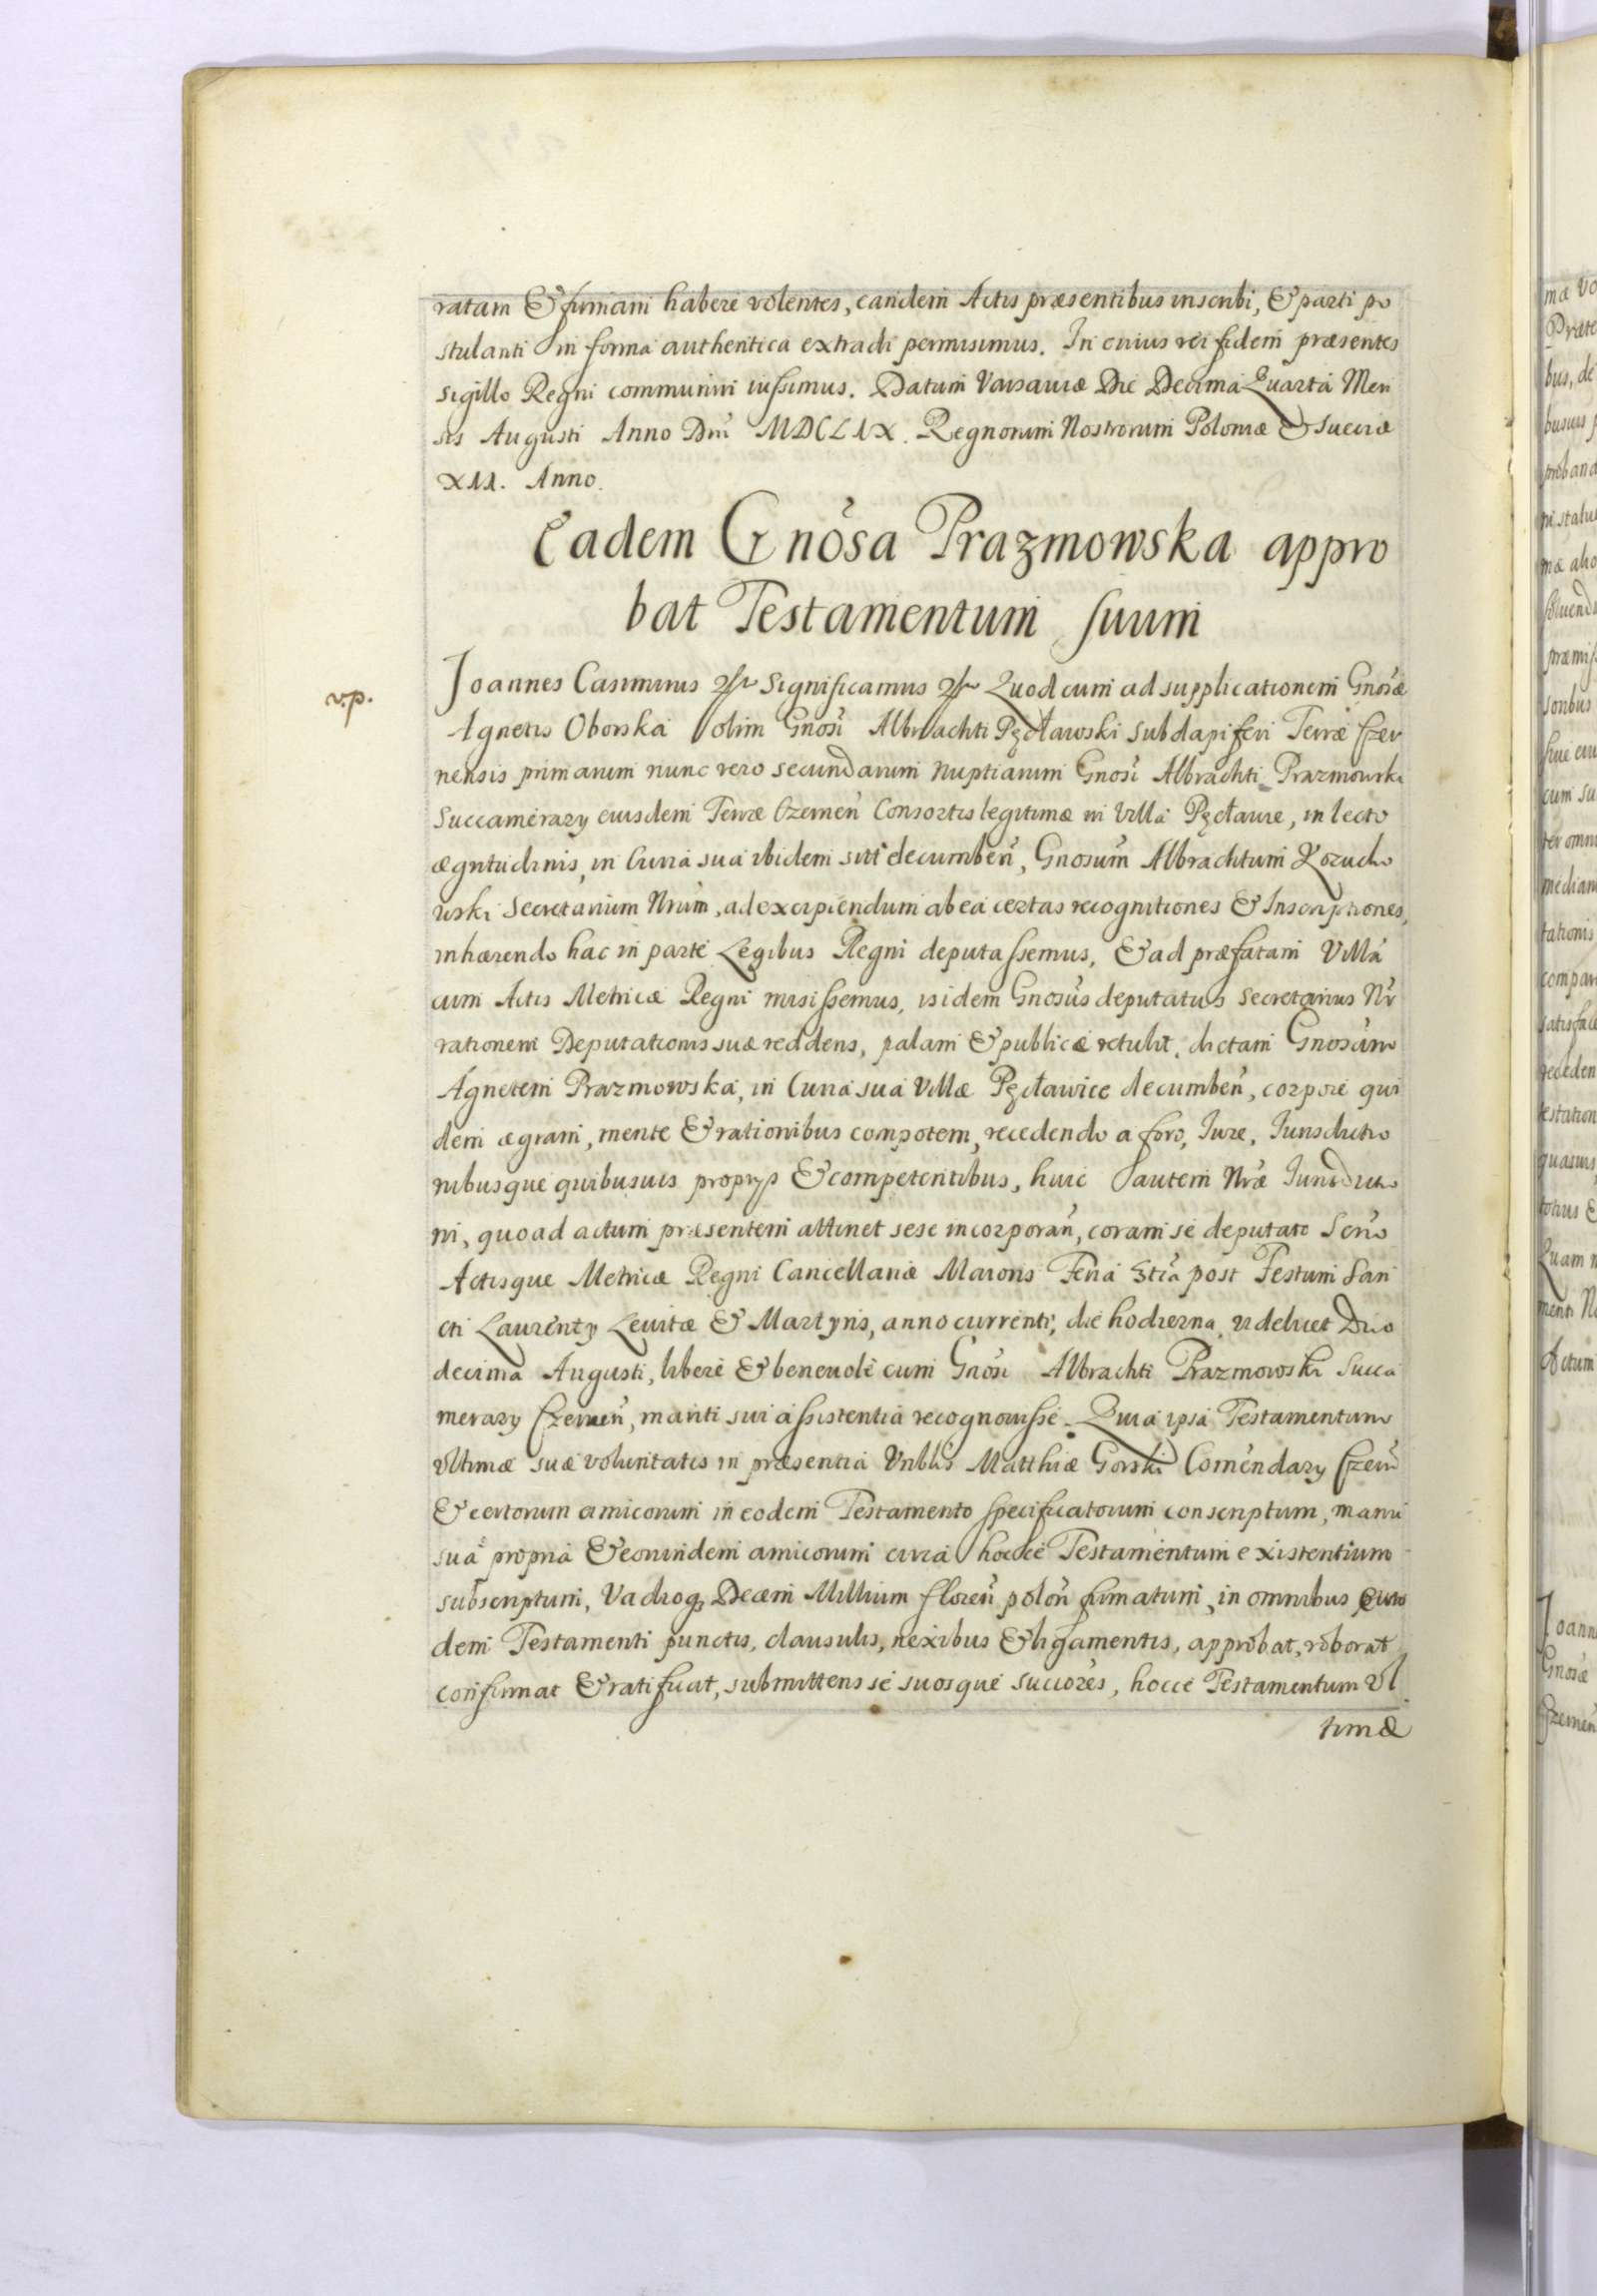 ratam & firmam habere volentes, eandem Actis præsentibus inscribi, & parti po
stulanti in forma authentica extradi permisimus. In cuius rei fidem præsentes
sigillo Regni communiri iussimus. Datum Varsaviæ Die Decima Quarta Men
sis Augusti Anno Dni MDCLIX. Regnorum Nostrorum Poloniæ & Sueciæ
XII. Anno.
Eadem Gnosa Prazmowska appro
bat Testamentum suum
v.p.
Joannes Casimirus Significamus Quod cum ad supplicationem Gnosæ
Agnetis Oborska olim Gnosi Albrachti Pęcławski Subdapiferi Terræ Czer
nensis primarum nunc vero secundarum nuptiarum Gnosi Albrachti Prazmowski
Succamerary eiusdem Terræ Czernen Consortis legitimæ in Villa Pęcławie, in lecto
ægritudinis, in Curia sua ibidem sitt decumben, Gnosum Albrachtum Kozucho
wski Secretarium Nrum, ad excipiendum ab ea certas recognitiones & Inscriptiones,
inhærendo hac in parte Legibus Regni deputassemus, & ad præfatam Villa
cum Actis Metricæ Regni misissemus, is idem Gnosus deputatus Secretarius Nr
rationem Deputationis suæ reddens, palam & publice retulit, dictam Gnosam
Agnetem Prazmowska, in Curia sua Villæ Pęcławice decumben, corpore qui
dem ægram, mente & rationibus compotem, recedendo a foro, Iure, Iurisdictio
nibusque quibusuis proprys & competentibus, huic autem Nræ Iurisdictio
ni, quoad actum præsentem attinet sese incorporan, coram se deputato Scrio
Actisque Metricæ Regni Cancellariæ Maioris Feria 3tia post Festum San
cti Laurenty Levitæ & Martyris, anno currenti, die hodierna, videlicet Duo
decima Augusti, libere & benevole cum Gnosi Albrachti Prazmowski Succa
merary Czernen, mariti sui assistentia recognouisse. Quia ipsa Testamentum
ultimæ suæ voluntatis in præsentia Vnblis Matthiæ Gorski Comendary Czern
& certorum amicorum in eodem Testamento specificatorum conscriptum, manu
sua propria & eorundem amicorum circa hocce Testamentum existentium
subscriptum, Vadioq Decem Millium floren polon firmatum, in omnibus eius
dem Testamenti punctis, clausulis, nexibus & ligamentis, approbat, roborat
confirmat & ratificat, submittens se suosque succores, hocce Testamentum Ul
timæ